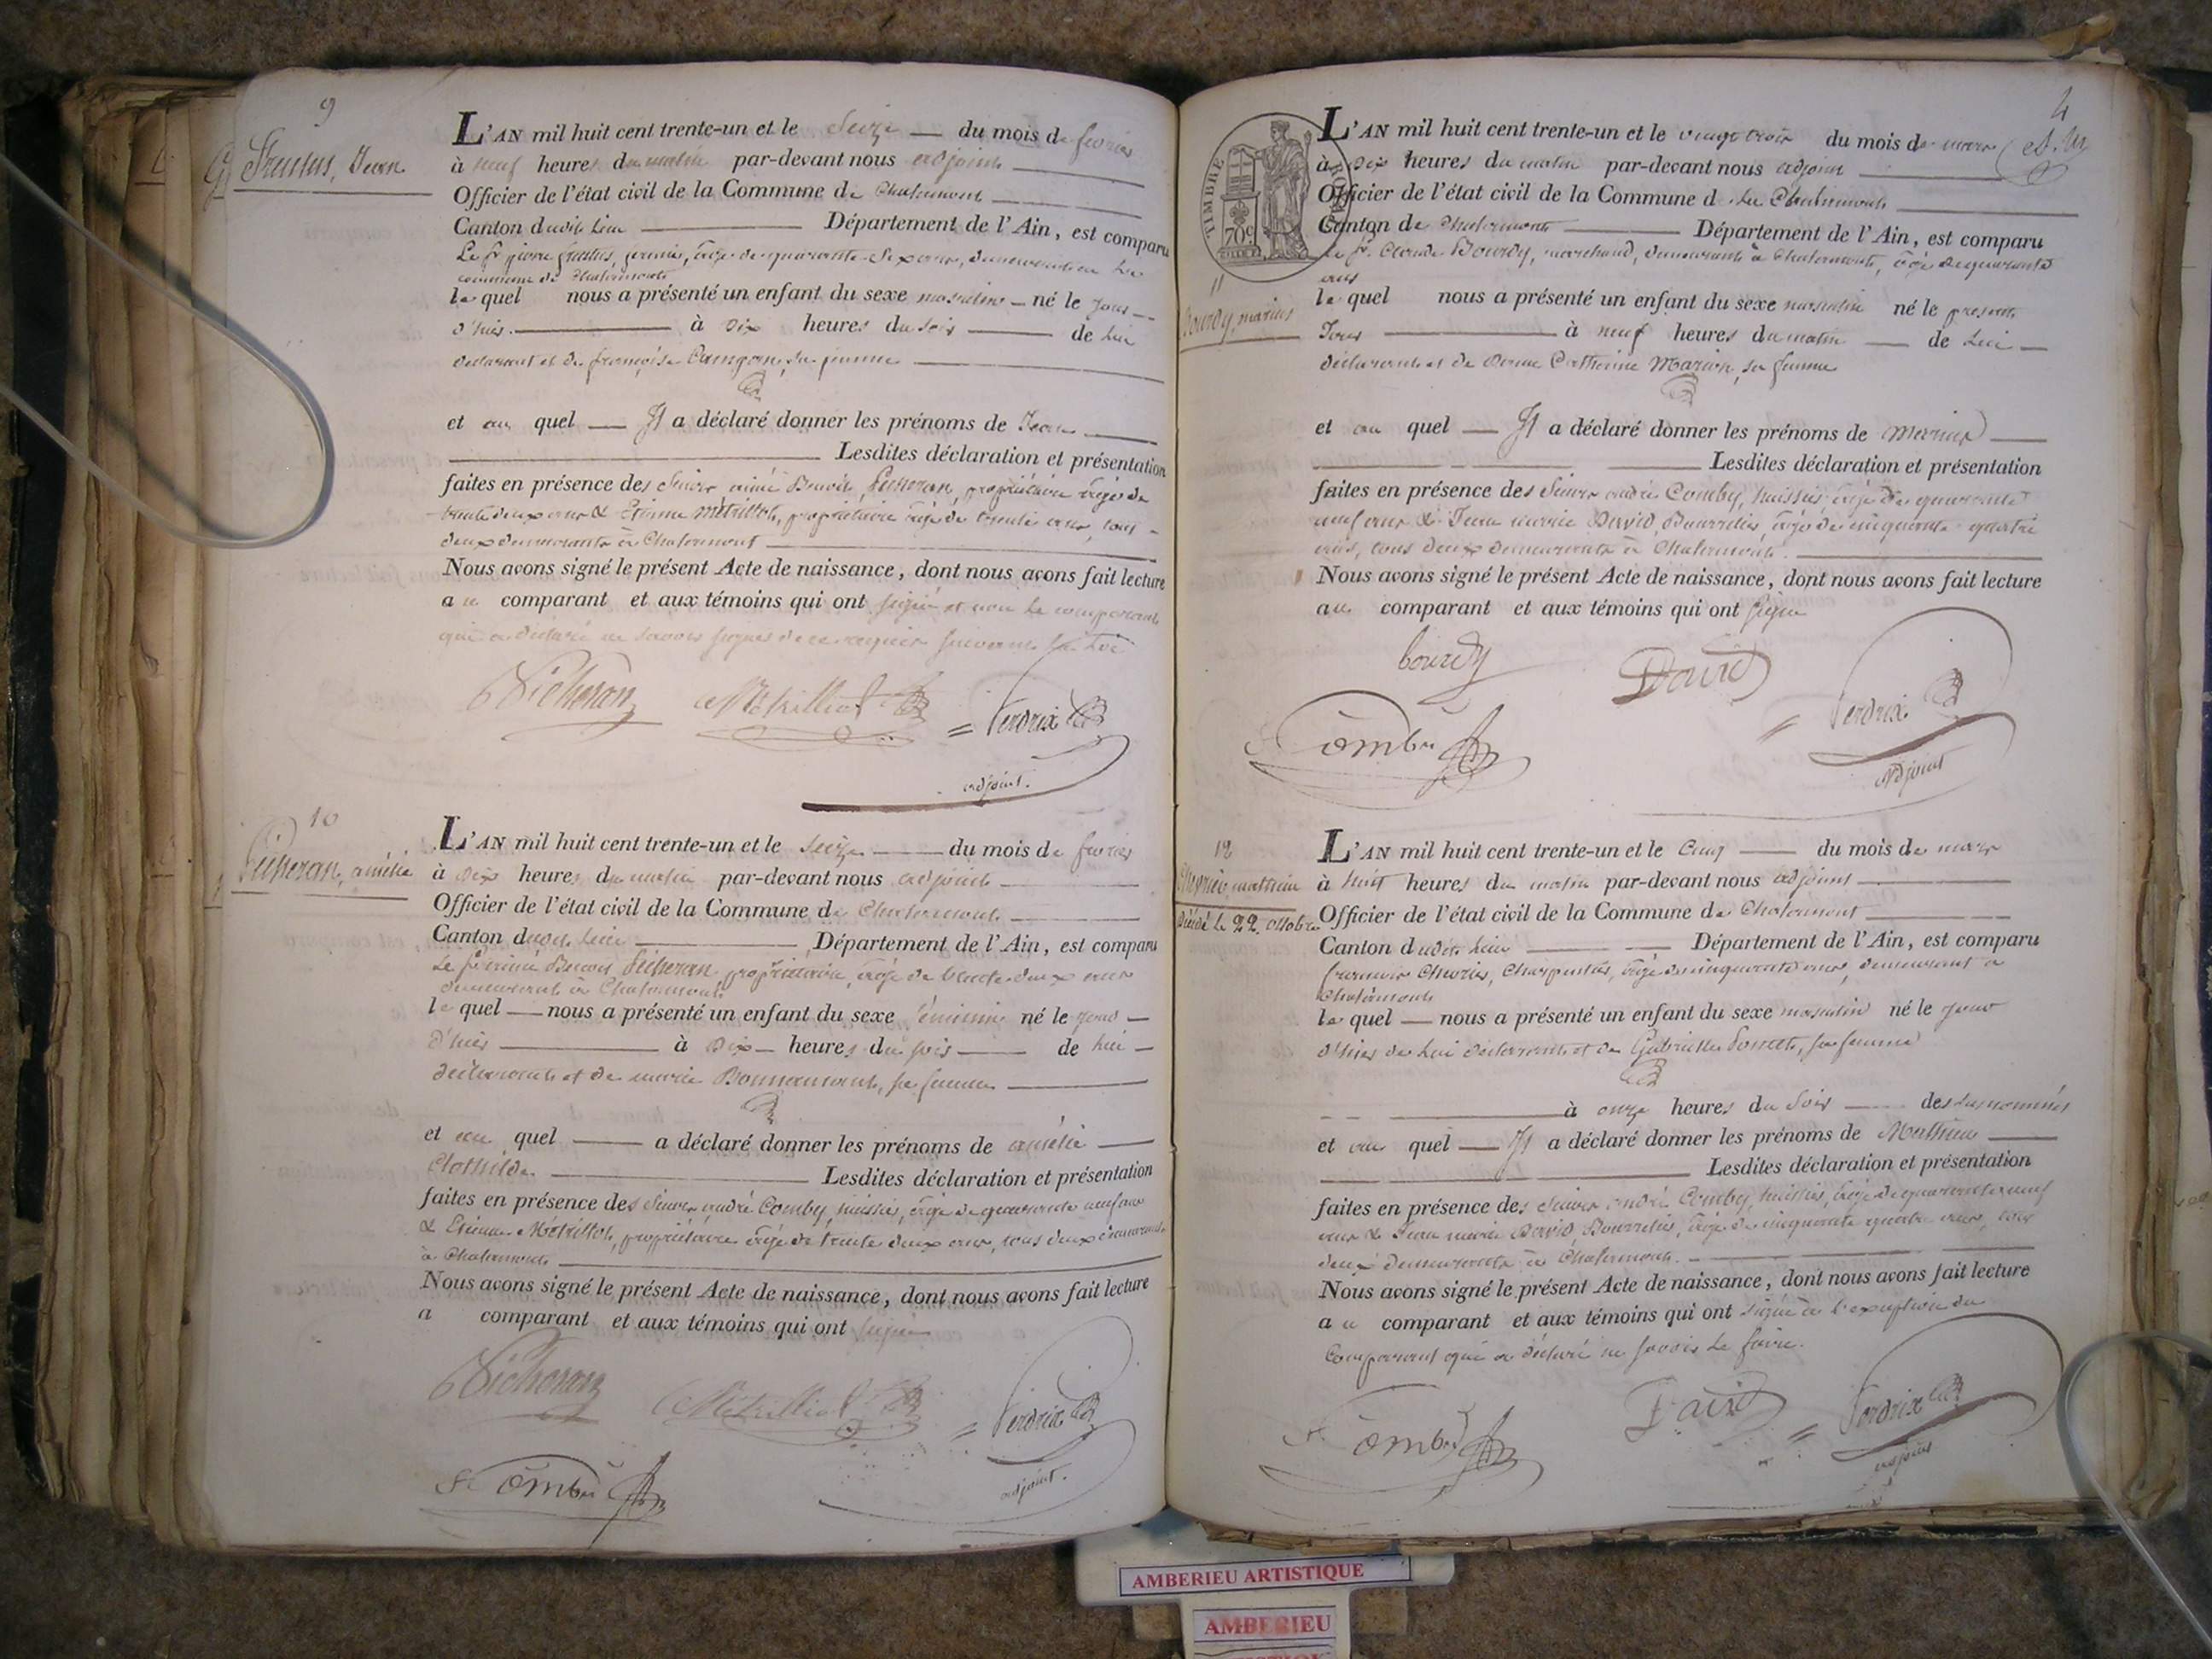 9
Frutus, Jean
L'AN mil huit cent trente-un et le Seize du mois de fevrier
à neuf heures du matin par-devant nous adjoint
Officier de l'état civil de la Commune de Chalamont
Canton dudit Lieu Département de l'Ain, est comparu
Le Sr pierre frutus, fermier, âgé de quarante-Six ans, demeurant en la
commune de Chalamont
lequel nous a présenté un enfant du sexe masculin né le jour
d'hier à Dix heures du soir de lui
declarant et de françoise sa femme
et au quel Il a déclaré donner les prénoms de Jean
Lesdites déclaration et présentation
faites en présence des Sieurs aimé Benoit Picheran, propriétaire âgé de
trente deux ans & Etienne Métrillot, propriétaire âgé de trente ans, tous
deux demeurants à Chalamont
Nous avons signé le présent Acte de naissance, dont nous avons fait lecture
au comparant et aux témoins qui ont signé et non le comparant
qui a déclaré ne savoir signer de ce requis suivant la Loi
Picheran Métrilliot Perdrix
adjoint.
10
Picheran, amélie
L'AN mil huit cent trente-un et le Seize du mois de fevrier
à Dix heures du matin par-devant nous adjoint
Officier de l'état civil de la Commune de Chalamont
Canton dudit Lieu Département de l'Ain, est comparu
Le Sr aimé Benoit Picheran propriétaire, âgé de trente-deux ans
demeurant à Chalamont
lequel nous a présenté un enfant du sexe féminin né le jour
d'hier à Dix heures du soir de lui
déclarant et de marie Bonnamant, sa femme
et au quel a déclaré donner les prénoms de amélie
Clothilde Lesdites déclaration et présentation
faites en présence des Sieurs andré Comby, huissier, âgé de quarante neuf ans
& Etienne Métrillot, propriétaire âgé de trente deux ans, tous deux demeurants
à Chalamont
Nous avons signé le présent Acte de naissance, dont nous avons fait lecture
a comparant et aux témoins qui ont signé
Picheran Métrilliot Perdrix
adjoint.
Comby
4
TIMBRE ROYAL
70c
11
Bourdy, marius
L'AN mil huit cent trente-un et le vingt trois du mois de mars
à Dix heures du matin par-devant nous adjoint
Officier de l'état civil de la Commune de Chalamont
Canton de Chalamont Département de l'Ain, est comparu
le Sr. Claude Bourdy, marchand, demeurant à Chalamont, âgé de quarante
ans
lequel nous a présenté un enfant du sexe masculin né le present
Jour à neuf heures du matin de Lui
déclarant et de Dame Catherine Marion, sa femme
et au quel Il a déclaré donner les prénoms de Marius
Lesdites déclaration et présentation
faites en présence des Sieurs andré Comby, huissier âgé de quarante
neuf ans & Jean marie David, Bourrelier, âgé de cinquante quatre
ans, tous deux demeurants à Chalamont.
Nous avons signé le présent Acte de naissance, dont nous avons fait lecture
au comparant et aux témoins qui ont signé
bourdy David
Comby Perdrix
adjoint
12
mathieu
Décédé le 22 octobre
L'AN mil huit cent trente-un et le Cinq du mois de mars
à huit heures du matin par-devant nous adjoint
Officier de l'état civil de la Commune de Chalamont
Canton dudit Lieu Département de l'Ain, est comparu
francois Charpentier, âgé de cinquante ans, demeurant à
Chalamont
lequel nous a présenté un enfant du sexe masculin né le jour
d'hier de lui déclarant et de Gabrielle sa femme
à onze heures du Soir des susnommés
et au quel Il a déclaré donner les prénoms de Mathieu
Lesdites déclaration et présentation
faites en présence des Sieurs andré Comby, huissier, âgé de quarante neuf
ans & Jean marie David, Bourrelier, âgé de cinquante quatre ans, tous
deux demeurants à Chalamont.
Nous avons signé le présent Acte de naissance, dont nous avons fait lecture
au comparant et aux témoins qui ont signé à l'exception du
Comparant qui a déclaré ne savoir le faire.
Comby David Perdrix
adjoint
AMBERIEU ARTISTIQUE
AMBERIEU